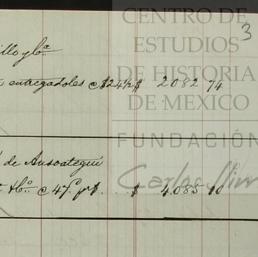 CENTRO DE
ESTUDIOS
DE HISTORIA
DE MEXICO
FUNDACIÓN
Carlos Slim
3
illo y Cª
entregadoles @ $24½ $ 2082 74
de Ansoategui
@ 47 $ 4.085 10